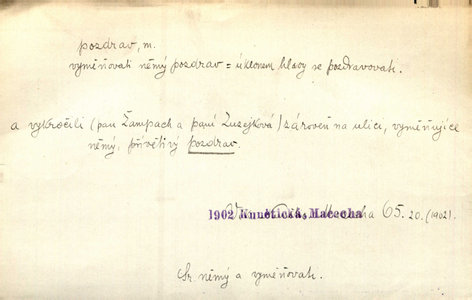 pozdrav, m.
vyměňovati němý pozdrav = úklonem hlavy se pozdravovati.
a vykročili (pan Žampach a paní Zuzejková) zároveň na ulici, vyměňujíce
němý, přívětivý pozdrav.
1902 Kunětická, Macecha 65. 20. (1902).
Sr. němý a vyměňovati.